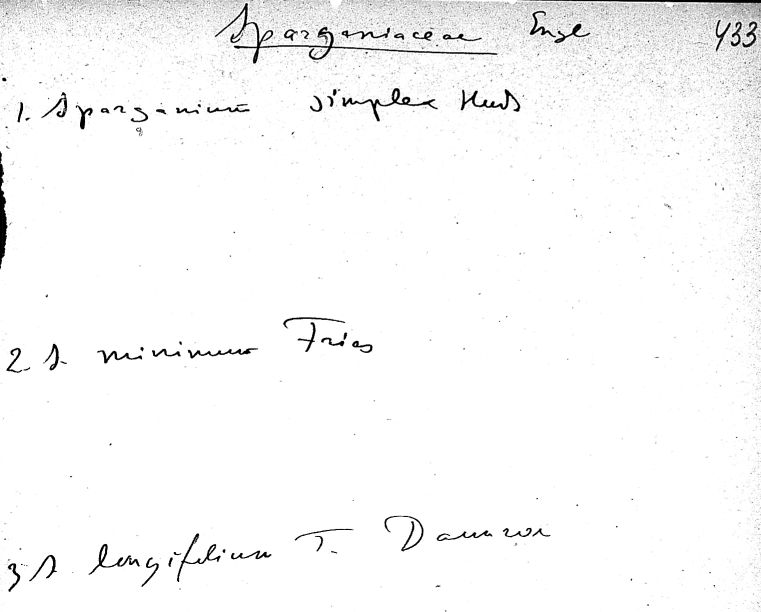 Sparganiaceae Engl 433
1. Sparganium simplex Huds
2. S. minimum Fries
3 S longifolium T.